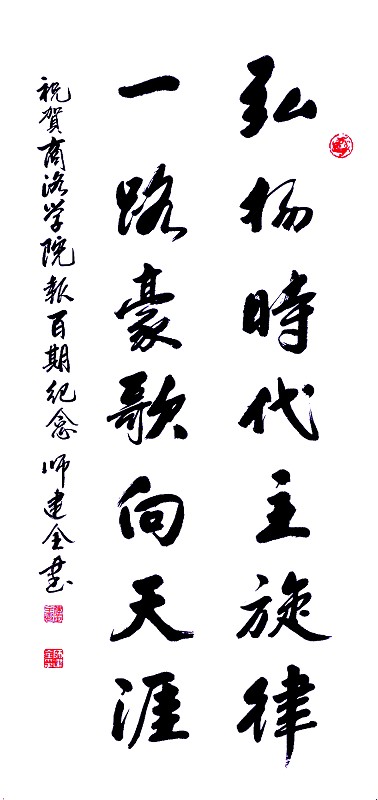 弘扬時代主旋律
一路豪歌向天涯
祝賀商洛学院報百期纪念 师建全书